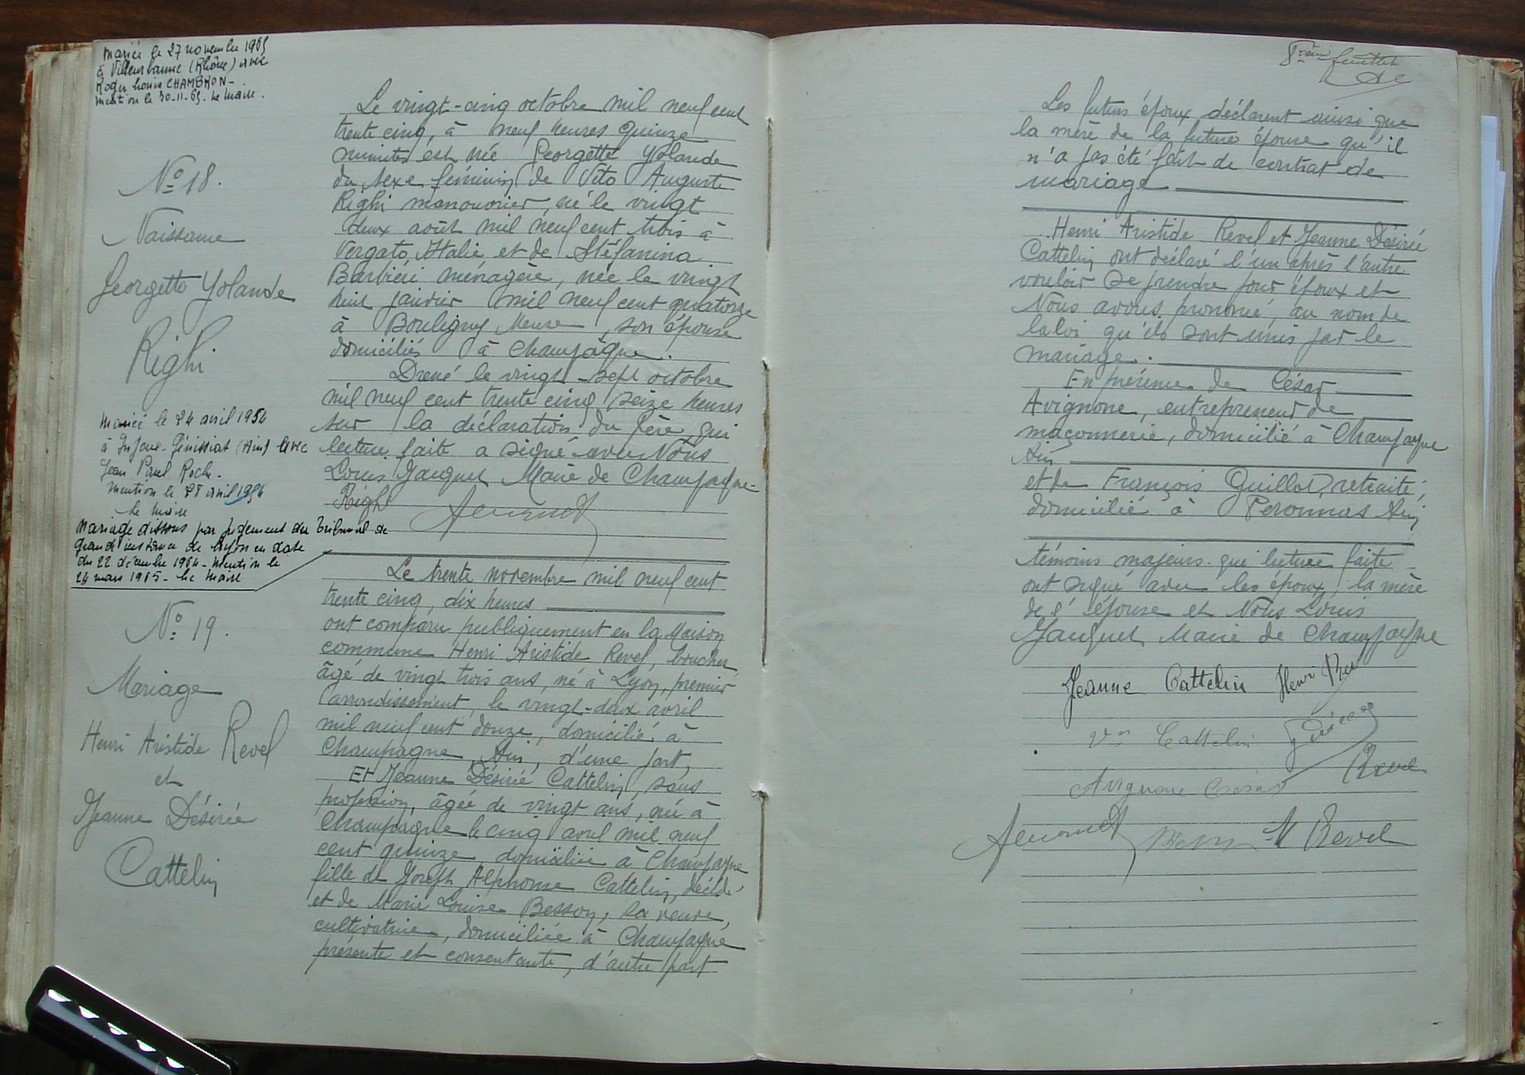 Mariée le 27 novembre 1965
à Villeurbanne (Rhône) avec
Roger Louis CHAMBRON -
Mention le 30-11-65. Le Maire.
N° 18.
Naissance
Georgette Yolande
Righi
Mariée le 24 avril 1954
à Injoux-Génissiat (Ain) avec
Jean Paul Roche.
Mention le 28 avril 1954
Le Maire
Mariage dissous par jugement du Tribunal de
grande instance de Lyon en date
du 22 décembre 1964 - Mention le
24 mars 1965 - Le Maire
Le vingt-cinq octobre mil neuf cent
trente cinq, à neuf heures quinze
minutes est née Georgette Yolande
du sexe féminin, de Vito Auguste
Righi manouvrier, né le vingt
deux août mil neuf cent trois à
Vergato, Italie et de Stéfanina
Barbieri ménagère, née le vingt
huit janvier mil neuf cent quatorze
à Bouligny Meuse, son épouse
domiciliés à Champagne.
Dressé le vingt-sept octobre
mil neuf cent trente cinq, seize heures
sur la déclaration du père qui
lecture faite a signé avec Nous
Louis Jacquet Maire de Champagne-
Righi
N° 19.
Mariage
Henri Aristide Revel
et
Jeanne Désirée
Cattelin
Le trente novembre mil neuf cent
trente cinq, dix heures
ont comparu publiquement en la Maison
commune Henri Aristide Revel, boucher
âgé de vingt trois ans, né à Lyon, premier
arrondissement, le vingt-deux avril
mil neuf cent douze, domicilié à
Champagne, Ain, d'une part,
Et Jeanne Désirée Cattelin, sans
profession, âgée de vingt ans, née à
Champagne le cinq avril mil neuf
cent quinze, domiciliée à Champagne
fille de Joseph Alphonse Cattelin, décédé,
et de Marie Louise Besson, sa veuve,
cultivatrice, domiciliée à Champagne
présente et consentante, d'autre part
8ème feuillet
Les futurs époux déclarent ainsi que
la mère de la future épouse qu'il
n'a pas été fait de contrat de
mariage
Henri Aristide Revel et Jeanne Désirée
Cattelin ont déclaré l'un après l'autre
vouloir se prendre pour époux et
Nous avons prononcé, au nom de
la loi qu'ils sont unis par le
mariage.
En présence de César
Avignone, entrepreneur de
maçonnerie, domicilié à Champagne
Ain
et de François Guillot, retraité,
domicilié à Péronnas Ain
témoins majeurs qui lecture faite
ont signé avec les époux, la mère
de l'épouse et Nous Louis
Jacquet Maire de Champagne
Jeanne Cattelin Henri Revel
Vve Cattelin
Revel
Avignone César
M Revel